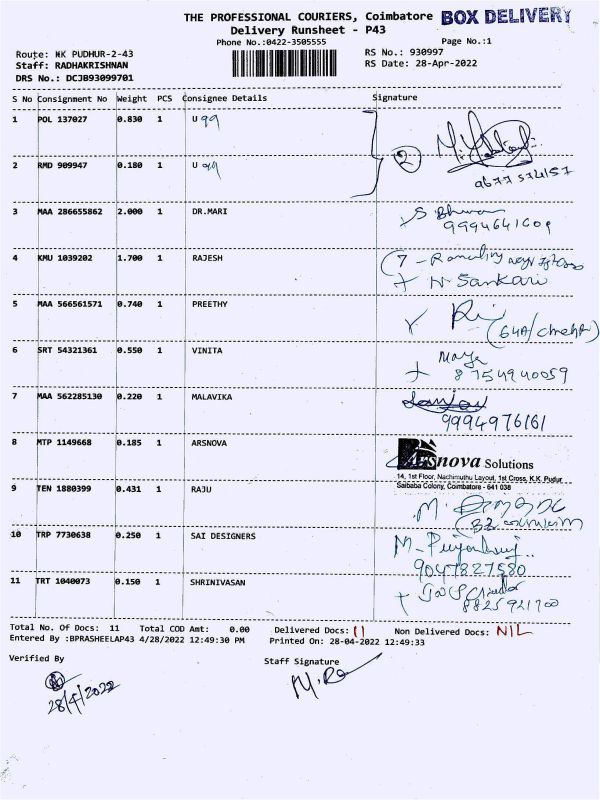 THE PROFESSIONAL COURIERS, Coimbatore BOX DELIVERY
Delivery Runsheet - P43
Phone No.:0422-3505555 Page No.:1
Route: KK PUDHUR-2-43 RS No.: 930997
Staff: RADHAKRISHNAN RS Date: 28-Apr-2022
DRS No.: DCJB93099701
S No Consignment No Weight PCS Consignee Details Signature
1 POL 137027 0.830 1 U 99
2 RMD 909947 0.180 1 U 99 2
3 MAA 286655862 2.000 1 DR.MARI
9994641609
4 KMU 1039202 1.700 1 RAJESH
N. Sankari
5 MAA 566561571 0.740 1 PREETHY
6 SRT 54321361 0.550 1 VINITA
8754940059
7 MAA 562285130 0.220 1 MALAVIKA
9994976161
8 MTP 1149668 0.185 1 ARSNOVA Arsnova Solutions
14, 1st Floor, Nachimuthu Layout, 1st Cross, K.K. Pudur
Saibaba Colony, Coimbatore - 641 038
9 TEN 1880399 0.431 1 RAJU
10 TRP 7730638 0.250 1 SAI DESIGNERS
9047827580
11 TRT 1040073 0.150 1 SHRINIVASAN
8825921700
Total No. Of Docs: 11 Total COD Amt: 0.00 Delivered Docs: 11 Non Delivered Docs: NIL
Entered By :BPRASHEELAP43 4/28/2022 12:49:30 PM Printed On: 28-04-2022 12:49:33
Verified By Staff Signature
28/4/2022